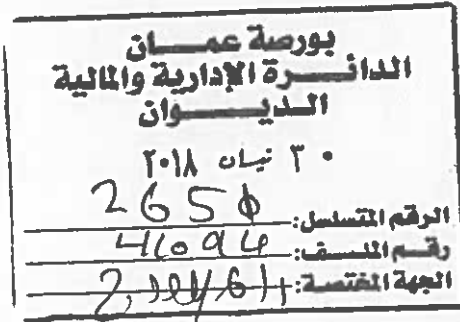 بورصة عمـــان
الدائـــرة الإدارية والمالية
الـديـــوان
٣٠ نيسان ٢٠١٨
الرقم المتسلسل:- 2650
رقـم الملـــف:-
الجهة المختصة:-